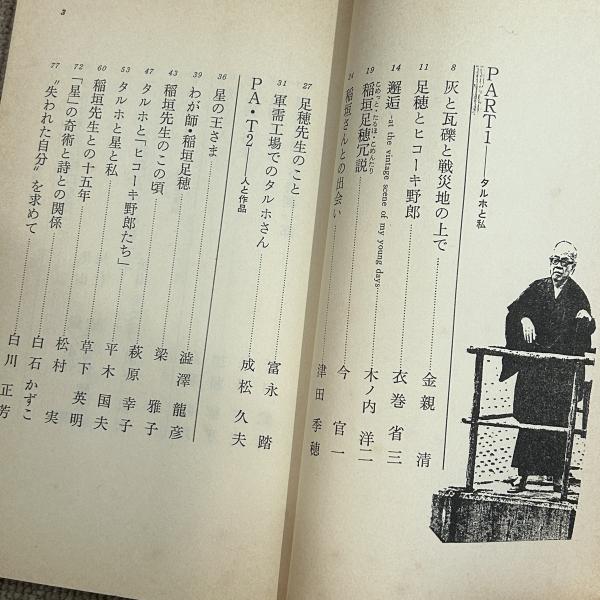 PART1——タルホと私
8 灰と瓦礫と戦災地の上で 金親 清
11 足穂とヒコーキ野郎 衣巻 省三
14 邂逅 -at the vintage scene of my young days 木ノ内 洋二
こめっと・たるほ・こめんたり
19 稲垣足穂冗説 今 官一
24 稲垣さんとの出会い 津田 季穂
27 足穂先生のこと 富永 踏
31 軍需工場でのタルホさん 成松 久夫
PA・T2——人と作品
36 星の王さま 澁澤 龍彦
39 わが師・稲垣足穂 梁 雅子
43 稲垣先生のこの頃 萩原 幸子
47 タルホと「ヒコーキ野郎たち」 平木 国夫
53 タルホと星と私 草下 英明
60 稲垣先生との十五年 松村 実
72 「星」の奇術と詩との関係 白石 かずこ
77 “失われた自分”を求めて 白川 正芳
3